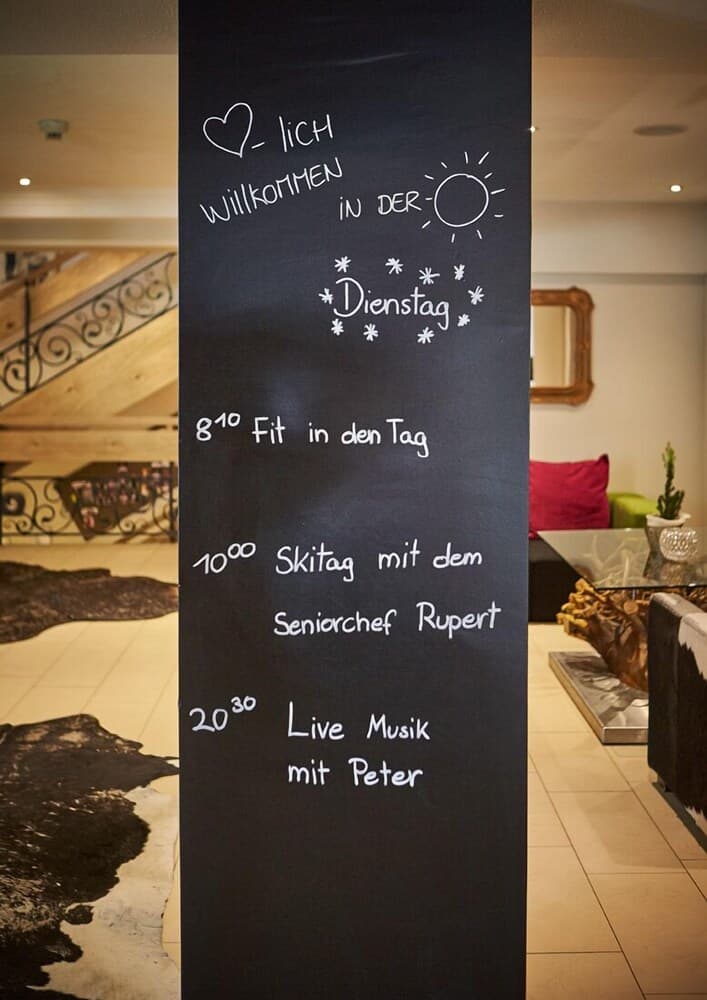 -lich
Willkommen
in der-
Dienstag
8¹⁰ Fit in den Tag
10⁰⁰ Skitag mit dem
Seniorchef Rupert
20³⁰ Live Musik
mit Peter